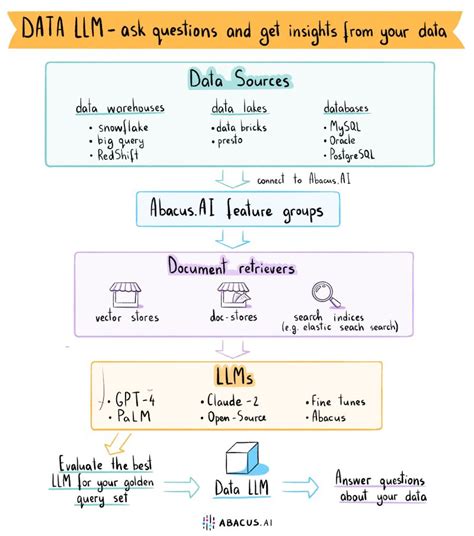 DATA LLM - ask questions and get insights from your data
Data Sources
data warehouses
• snowflake
• big query
• RedShift
data lakes
• data bricks
• presto
databases
• MySQL
• Oracle
• PostgreSQL
connect to Abacus.AI
Abacus.AI feature groups
Document retrievers
vector stores
doc-stores
search indices
(e.g. elastic seach search)
LLMs
• GPT-4
• PaLM
• Claude-2
• Open-Source
• Fine tunes
• Abacus
Evaluate the best
LLM for your golden
query set
Data LLM
Answer questions
about your data
ABACUS.AI